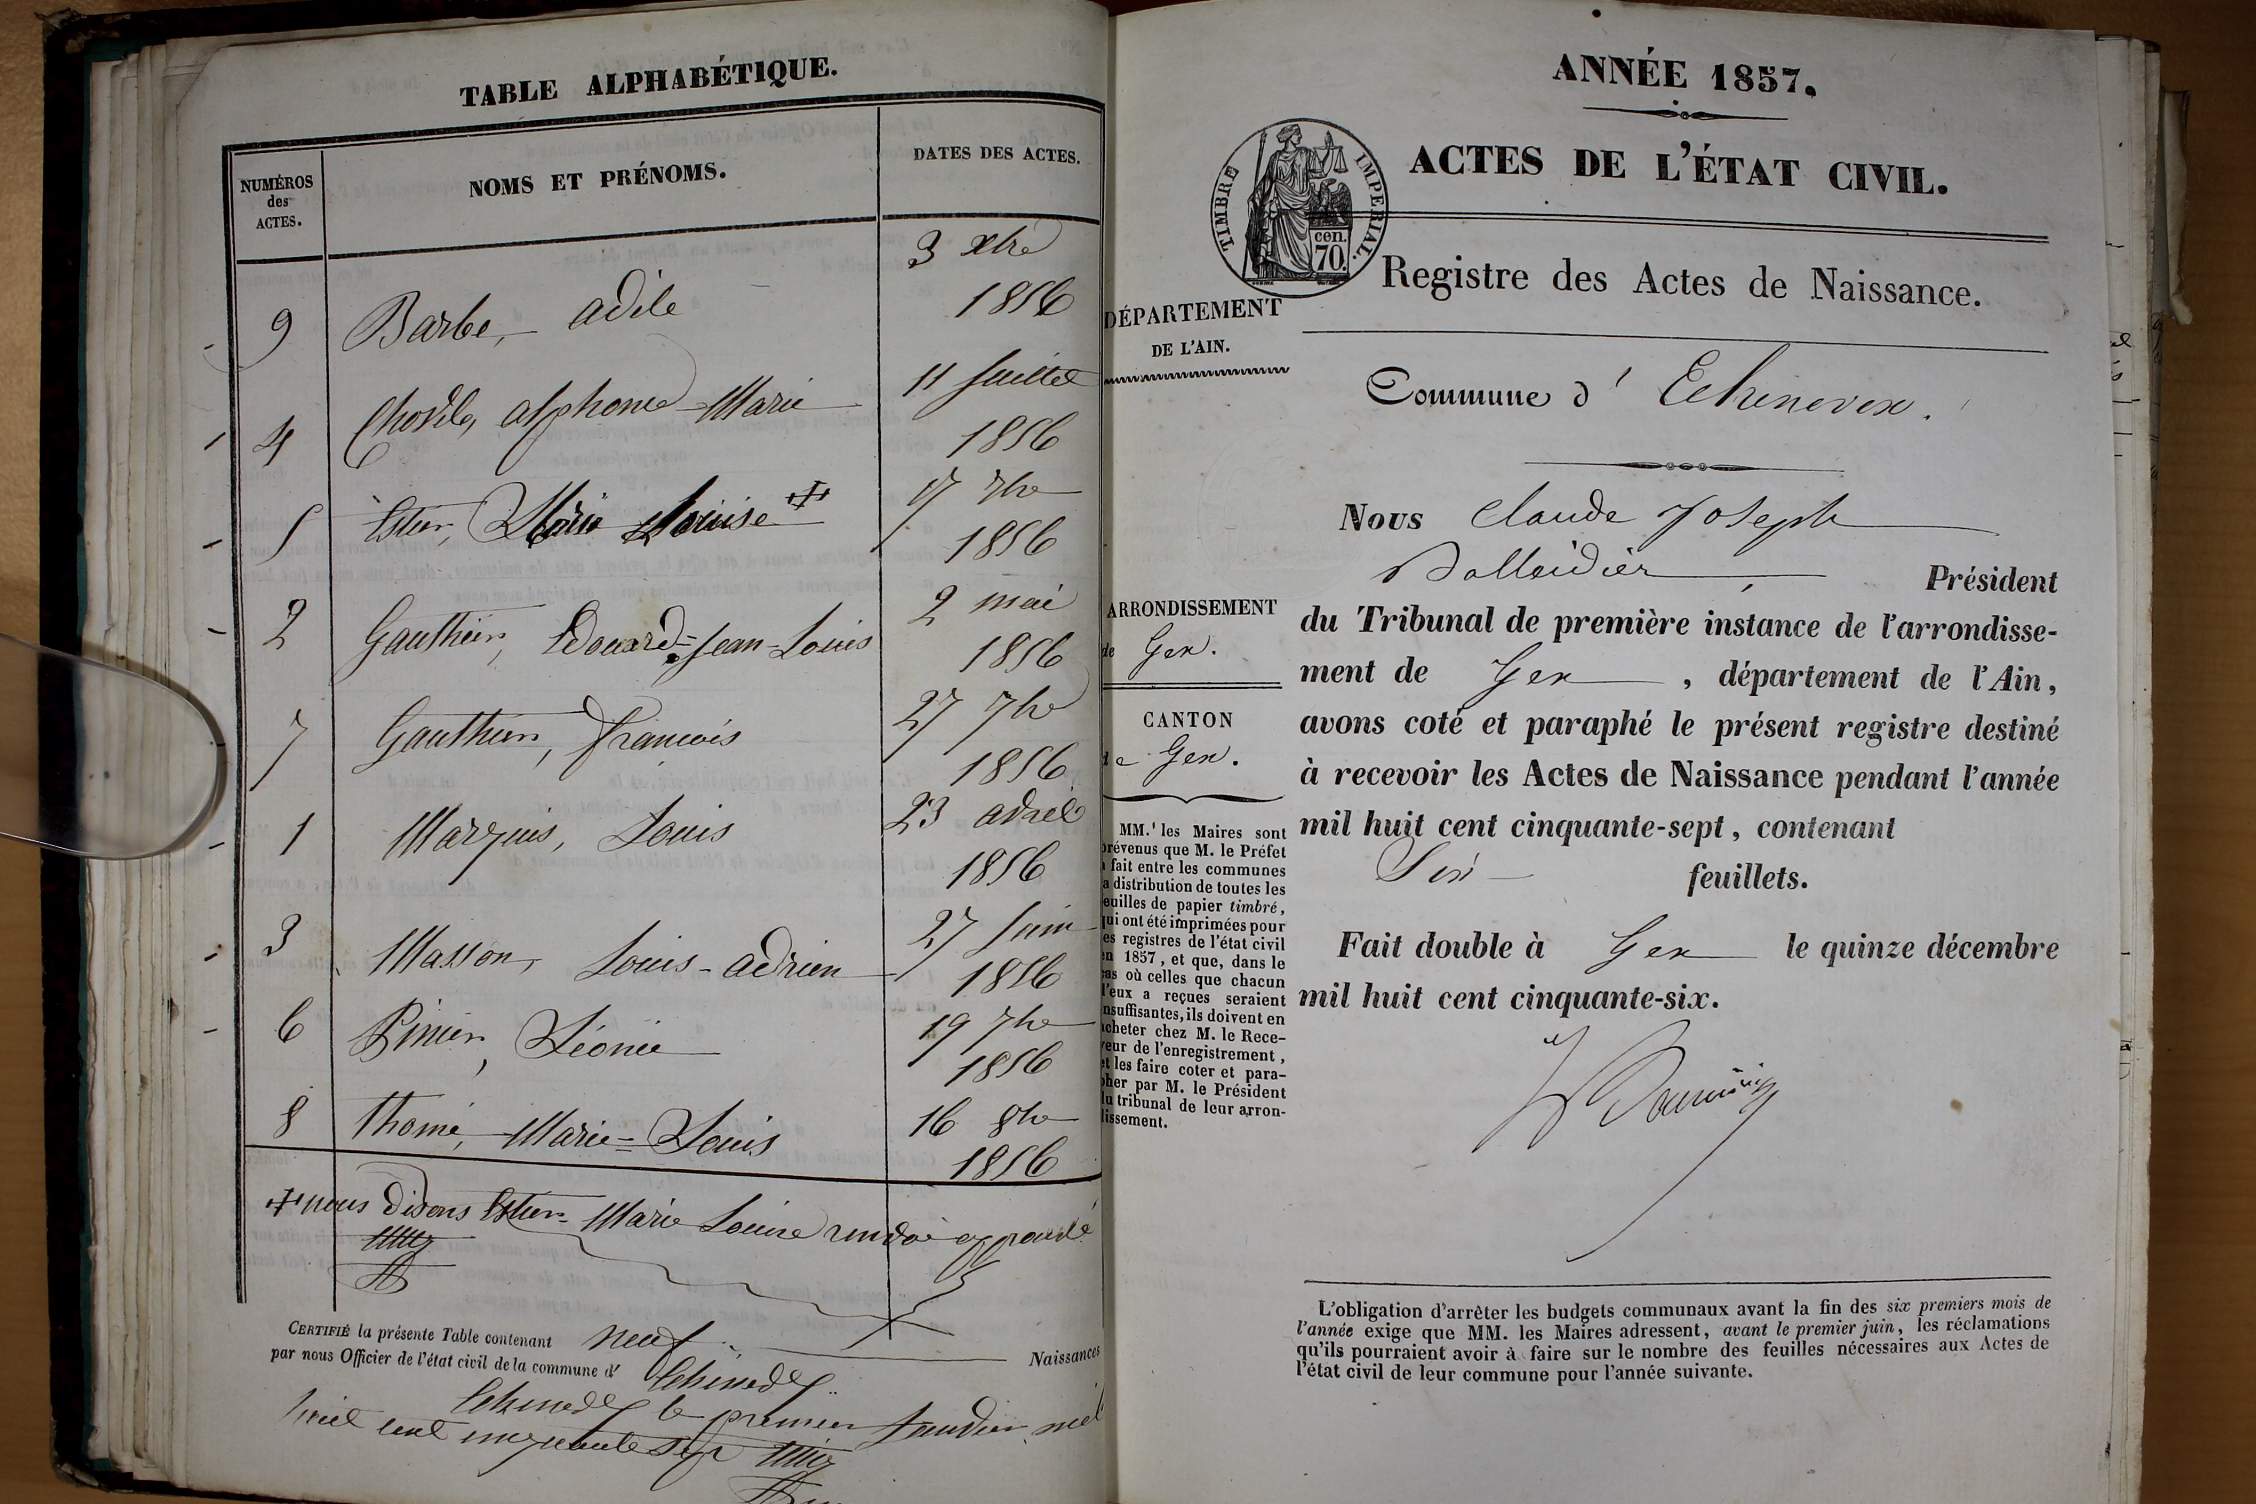 TABLE ALPHABÉTIQUE.
NUMÉROS
des
ACTES.
NOMS ET PRÉNOMS.
DATES DES ACTES.
3 xbre
9 Barbe, adile 1856
11 juillet
4 alphonse-Marie 1856
17 7bre
5 Marie Louise 1856
2 mai
2 Gauthier, Edouard=jean-Louis 1856
27 7bre
7 Gauthier, françois 1856
23 avril
1 Marquis, Louis 1856
27 juin
3 Masson, Louis-adrien 1856
19 7bre
6 Pinier, Léonie 1856
16 8bre
8 thomé, Marie=Louis 1856
nous disons Marie Louise renvoi approuvé
CERTIFIÉ la présente Table contenant neuf Naissances
par nous Officier de l'état civil de la commune d' Echenevex
Echenevex le premier janvier mil
huit cent cinquante sept
ANNÉE 1857.
ACTES DE L'ÉTAT CIVIL.
TIMBRE IMPERIAL.
cen.
70.
Registre des Actes de Naissance.
DÉPARTEMENT
DE L'AIN.
Commune d' Echenevex.
Nous Claude Joseph
Président
ARRONDISSEMENT
de Gex.
CANTON
de Gex.
du Tribunal de première instance de l'arrondisse-
ment de Gex, département de l'Ain,
avons coté et paraphé le présent registre destiné
à recevoir les Actes de Naissance pendant l'année
mil huit cent cinquante-sept, contenant
Six feuillets.
Fait double à Gex le quinze décembre
mil huit cent cinquante-six.
MM. les Maires sont
prévenus que M. le Préfet
a fait entre les communes
la distribution de toutes les
feuilles de papier timbré,
qui ont été imprimées pour
les registres de l'état civil
en 1857, et que, dans le
cas où celles que chacun
d'eux a reçues seraient
insuffisantes, ils doivent en
acheter chez M. le Rece-
veur de l'enregistrement,
et les faire coter et para-
pher par M. le Président
du tribunal de leur arron-
dissement.
L'obligation d'arrêter les budgets communaux avant la fin des six premiers mois de
l'année exige que MM. les Maires adressent, avant le premier juin, les réclamations
qu'ils pourraient avoir à faire sur le nombre des feuilles nécessaires aux Actes de
l'état civil de leur commune pour l'année suivante.